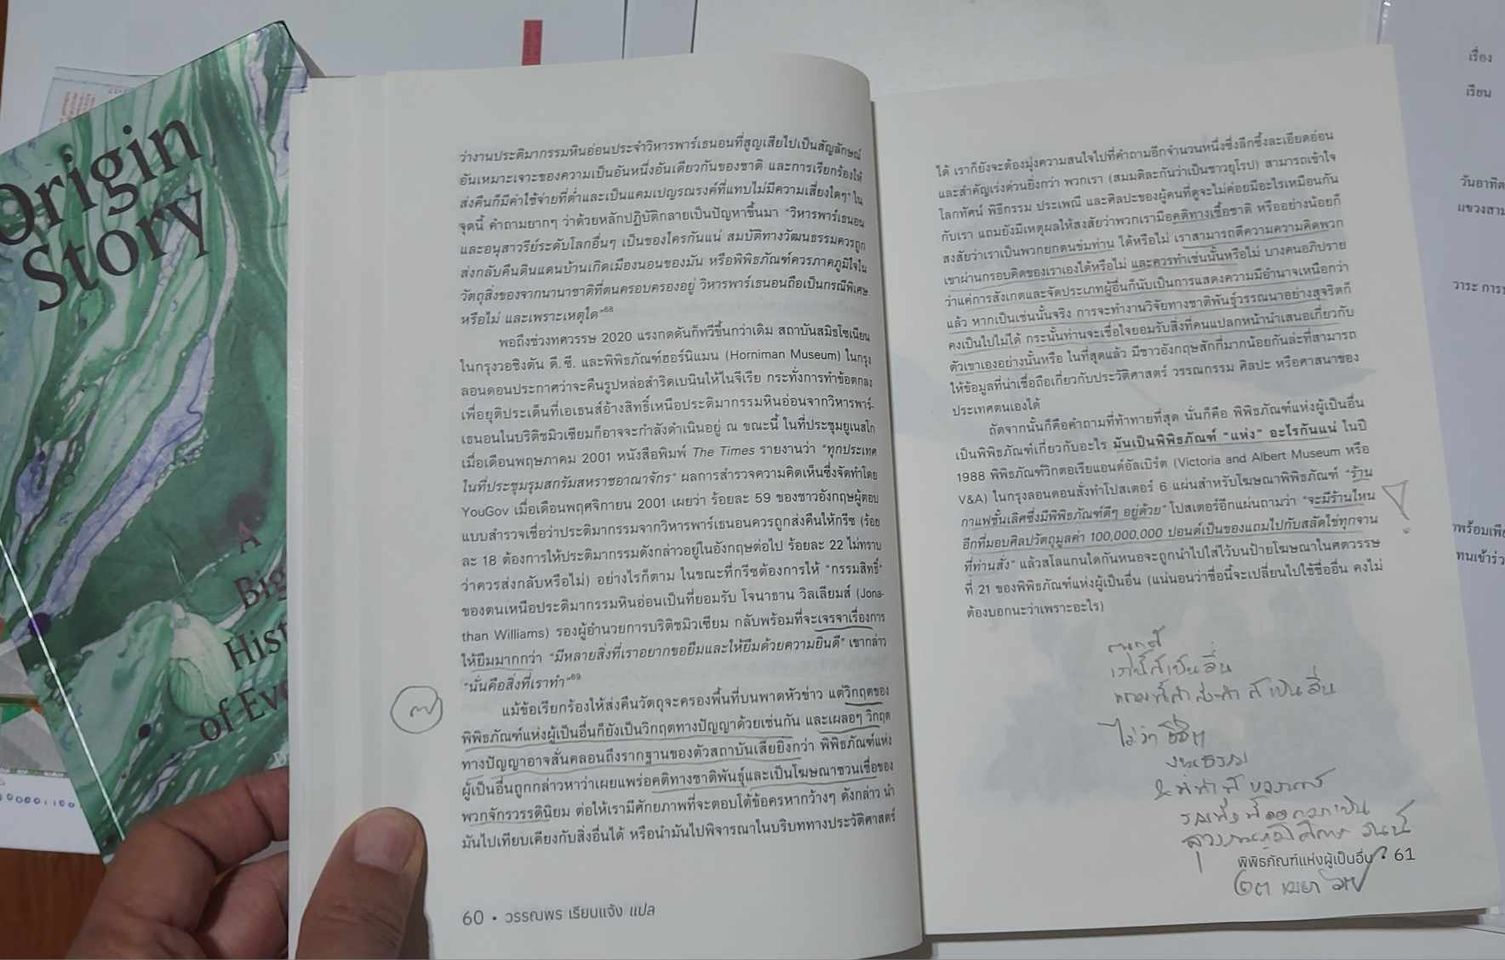 Origin
Story
A
Big
Hist
of Eve
ว่างานประติมากรรมหินอ่อนประจำวิหารพาร์เธนอนที่สูญเสียไปเป็นสัญลักษณ์
อันเหมาะเจาะของความเป็นอันหนึ่งอันเดียวกันของชาติ และการเรียกร้องให้
ส่งคืนก็มีค่าใช้จ่ายที่ต่ำและเป็นแคมเปญรณรงค์ที่แทบไม่มีความเสี่ยงใดๆ ใน
จุดนี้ คำถามยากๆ ว่าด้วยหลักปฏิบัติกลายเป็นปัญหาขึ้นมา “วิหารพาร์เธนอน
และอนุสาวรีย์ระดับโลกอื่นๆ เป็นของใครกันแน่ สมบัติทางวัฒนธรรมควรถูก
ส่งกลับคืนดินแดนบ้านเกิดเมืองนอนของมัน หรือพิพิธภัณฑ์ควรภาคภูมิใจใน
วัตถุสิ่งของจากนานาชาติที่ตนครอบครองอยู่ วิหารพาร์เธนอนถือเป็นกรณีพิเศษ
หรือไม่ และเพราะเหตุใด”68
พอถึงช่วงทศวรรษ 2020 แรงกดดันก็ทวีขึ้นกว่าเดิม สถาบันสมิธโซเนียน
ในกรุงวอชิงตัน ดี. ซี. และพิพิธภัณฑ์ฮอร์นิแมน (Horniman Museum) ในกรุง
ลอนดอนประกาศว่าจะคืนรูปหล่อสำริดเบนินให้ไนจีเรีย กระทั่งการทำข้อตกลง
เพื่อยุติประเด็นที่เอเธนส์อ้างสิทธิ์เหนือประติมากรรมหินอ่อนจากวิหารพาร์-
เธนอนในบริติชมิวเซียมก็อาจจะกำลังดำเนินอยู่ ณ ขณะนี้ ในที่ประชุมยูเนสโก
เมื่อเดือนพฤษภาคม 2001 หนังสือพิมพ์ The Times รายงานว่า “ทุกประเทศ
ในที่ประชุมรุมสกรัมสหราชอาณาจักร” ผลการสำรวจความคิดเห็นซึ่งจัดทำโดย
YouGov เมื่อเดือนพฤศจิกายน 2001 เผยว่า ร้อยละ 59 ของชาวอังกฤษผู้ตอบ
แบบสำรวจเชื่อว่าประติมากรรมจากวิหารพาร์เธนอนควรถูกส่งคืนให้กรีซ (ร้อย
ละ 18 ต้องการให้ประติมากรรมดังกล่าวอยู่ในอังกฤษต่อไป ร้อยละ 22 ไม่ทราบ
ว่าควรส่งกลับหรือไม่) อย่างไรก็ตาม ในขณะที่กรีซต้องการให้ “กรรมสิทธิ์”
ของตนเหนือประติมากรรมหินอ่อนเป็นที่ยอมรับ โจนาธาน วิลเลียมส์ (Jona-
than Williams) รองผู้อำนวยการบริติชมิวเซียม กลับพร้อมที่จะเจรจาเรื่องการ
ให้ยืมมากกว่า “มีหลายสิ่งที่เราอยากขอยืมและให้ยืมด้วยความยินดี” เขากล่าว
“นั่นคือสิ่งที่เราทำ”69
แม้ข้อเรียกร้องให้ส่งคืนวัตถุจะครองพื้นที่บนพาดหัวข่าว แต่วิกฤตของ
พิพิธภัณฑ์แห่งผู้เป็นอื่นก็ยังเป็นวิกฤตทางปัญญาด้วยเช่นกัน และเผลอๆ วิกฤต
ทางปัญญาอาจสั่นคลอนถึงรากฐานของตัวสถาบันเสียยิ่งกว่า พิพิธภัณฑ์แห่ง
ผู้เป็นอื่นถูกกล่าวหาว่าเผยแพร่อคติทางชาติพันธุ์และเป็นโฆษณาชวนเชื่อของ
พวกจักรวรรดินิยม ต่อให้เรามีศักยภาพที่จะตอบโต้ข้อครหากว้างๆ ดังกล่าว นำ
มันไปเทียบเคียงกับสิ่งอื่นได้ หรือนำมันไปพิจารณาในบริบททางประวัติศาสตร์
60 • วรรณพร เรียนแจ้ง แปล
ได้ เราก็ยังจะต้องมุ่งความสนใจไปที่คำถามอีกจำนวนหนึ่งซึ่งลึกซึ้งละเอียดอ่อน
และสำคัญเร่งด่วนยิ่งกว่า พวกเรา (สมมติละกันว่าเป็นชาวยุโรป) สามารถเข้าใจ
โลกทัศน์ พิธีกรรม ประเพณี และศิลปะของผู้คนที่ดูจะไม่ค่อยมีอะไรเหมือนกัน
กับเรา แถมยังมีเหตุผลให้สงสัยว่าพวกเรามีอคติทางเชื้อชาติ หรืออย่างน้อยก็
สงสัยว่าเราเป็นพวกยกตนข่มท่าน ได้หรือไม่ เราสามารถตีความความคิดพวก
เขาผ่านกรอบคิดของเราเองได้หรือไม่ และควรทำเช่นนั้นหรือไม่ บางคนอภิปราย
ว่าแค่การสังเกตและจัดประเภทผู้อื่นก็นับเป็นการแสดงความมีอำนาจเหนือกว่า
แล้ว หากเป็นเช่นนั้นจริง การจะทำงานวิจัยทางชาติพันธุ์วรรณนาอย่างสุจริตก็
คงเป็นไปไม่ได้ กระนั้นท่านจะเชื่อใจยอมรับสิ่งที่คนแปลกหน้านำเสนอเกี่ยวกับ
ตัวเขาเองอย่างนั้นหรือ ในที่สุดแล้ว มีชาวอังกฤษสักกี่มากน้อยกันล่ะที่สามารถ
ให้ข้อมูลที่น่าเชื่อถือเกี่ยวกับประวัติศาสตร์ วรรณกรรม ศิลปะ หรือศาสนาของ
ประเทศตนเองได้
ถัดจากนั้นก็คือคำถามที่ท้าทายที่สุด นั่นก็คือ พิพิธภัณฑ์แห่งผู้เป็นอื่น
เป็นพิพิธภัณฑ์เกี่ยวกับอะไร มันเป็นพิพิธภัณฑ์ “แห่ง” อะไรกันแน่ ในปี
1988 พิพิธภัณฑ์วิกตอเรียแอนด์อัลเบิร์ต (Victoria and Albert Museum หรือ
V&A) ในกรุงลอนดอนสั่งทำโปสเตอร์ 6 แผ่นสำหรับโฆษณาพิพิธภัณฑ์ “ร้าน
กาแฟชั้นเลิศซึ่งมีพิพิธภัณฑ์ดีๆ อยู่ด้วย” โปสเตอร์อีกแผ่นถามว่า “จะมีร้านไหน
อีกที่มอบศิลปวัตถุมูลค่า 100,000,000 ปอนด์เป็นของแถมไปกับสลัดไข่ทุกจาน
ที่ท่านสั่ง” แล้วสโลแกนใดกันหนอจะถูกนำไปใส่ไว้บนป้ายโฆษณาในศตวรรษ
ที่ 21 ของพิพิธภัณฑ์แห่งผู้เป็นอื่น (แน่นอนว่าชื่อนี้จะเปลี่ยนไปใช้ชื่ออื่น คงไม่
ต้องบอกนะว่าเพราะอะไร)
พิพิธภัณฑ์แห่งผู้เป็นอื่น • 61
เรื่อง
เรียน
วันอาทิต
แขวงสาม
วาระ การ